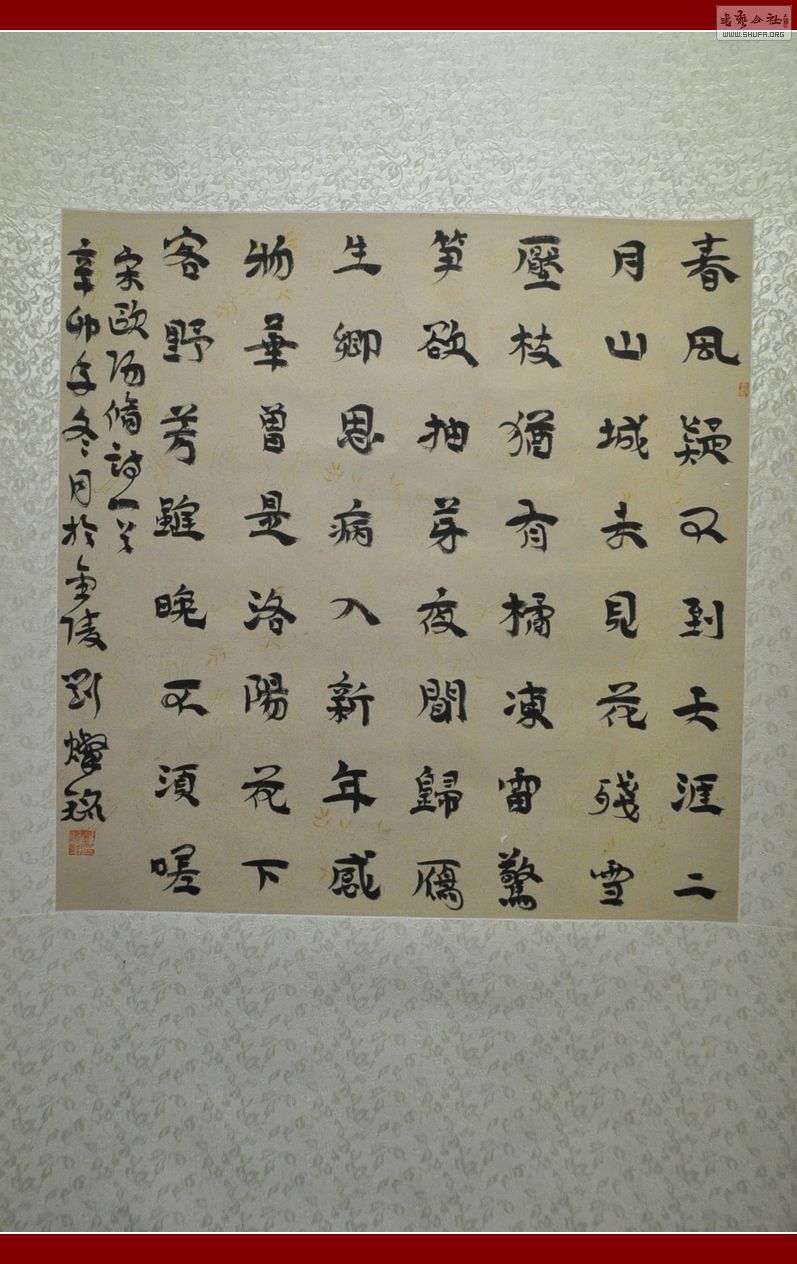 春風疑不到天涯二
月山城未見花殘雪
壓枝猶有橘凍雷驚
筍欲抽芽夜聞歸雁
生鄉思病入新年感
物華曾是洛陽花下
客野芳雖晚不須嗟
宋歐陽脩詩一首
辛卯年冬月於金陵劉燦銘
書藝公社
WWW.SHUFA.ORG